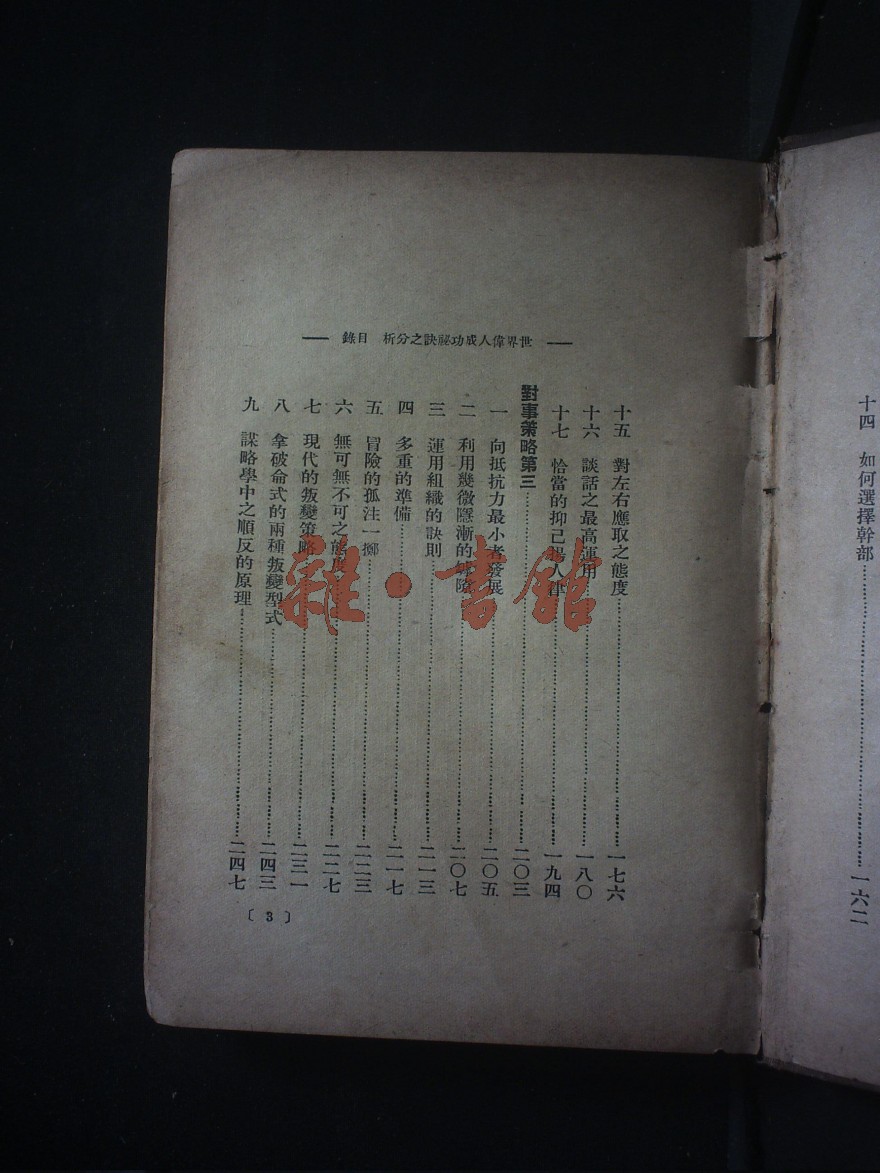 十四 如何選擇幹部 一六二
世界偉人成功祕訣之分析 目錄
十五 對左右應取之態度 一七六
十六 談話之最高運用 一八〇
十七 恰當的抑己揚人律 一九四
對事策略第三 二〇三
一 向抵抗力最小者發展 二〇五
二 利用幾微隱漸的 二〇七
三 運用組織的訣則 二一三
四 多重的準備 二一七
五 冒險的孤注一擲 二二三
六 無可無不可之態度 二二七
七 現代的叛變策略 二三一
八 拿破侖式的兩種叛變型式 二四三
九 謀略學中之順反的原理 二四七
〔3〕
雜·書館